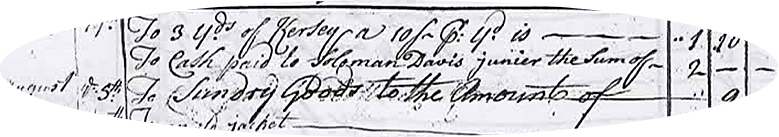 To 3 yds of Kersey a 10/ pr. yd is — 1 10
To Cash paid to Soloman Davis junier the Sum of 2 — —
August ye 5th To Sundry Goods to the Amount of 9
jacket